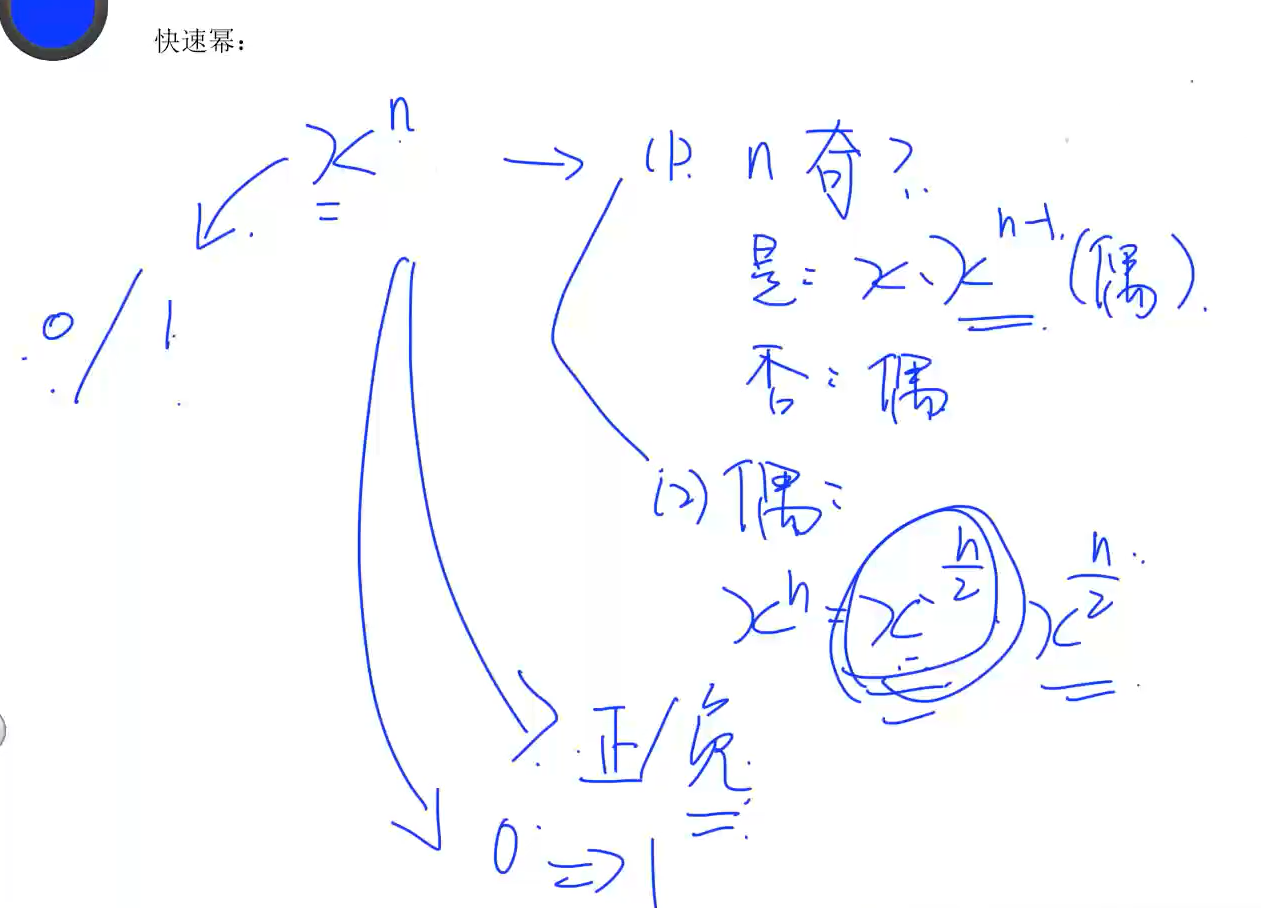 快速幂：
xⁿ → (1) n 奇？
是：x·xⁿ⁻¹(偶)
0/1
否：偶
(2) 偶：
xⁿ = x^(n/2) x^(n/2)
正/负
0 ⇒ 1